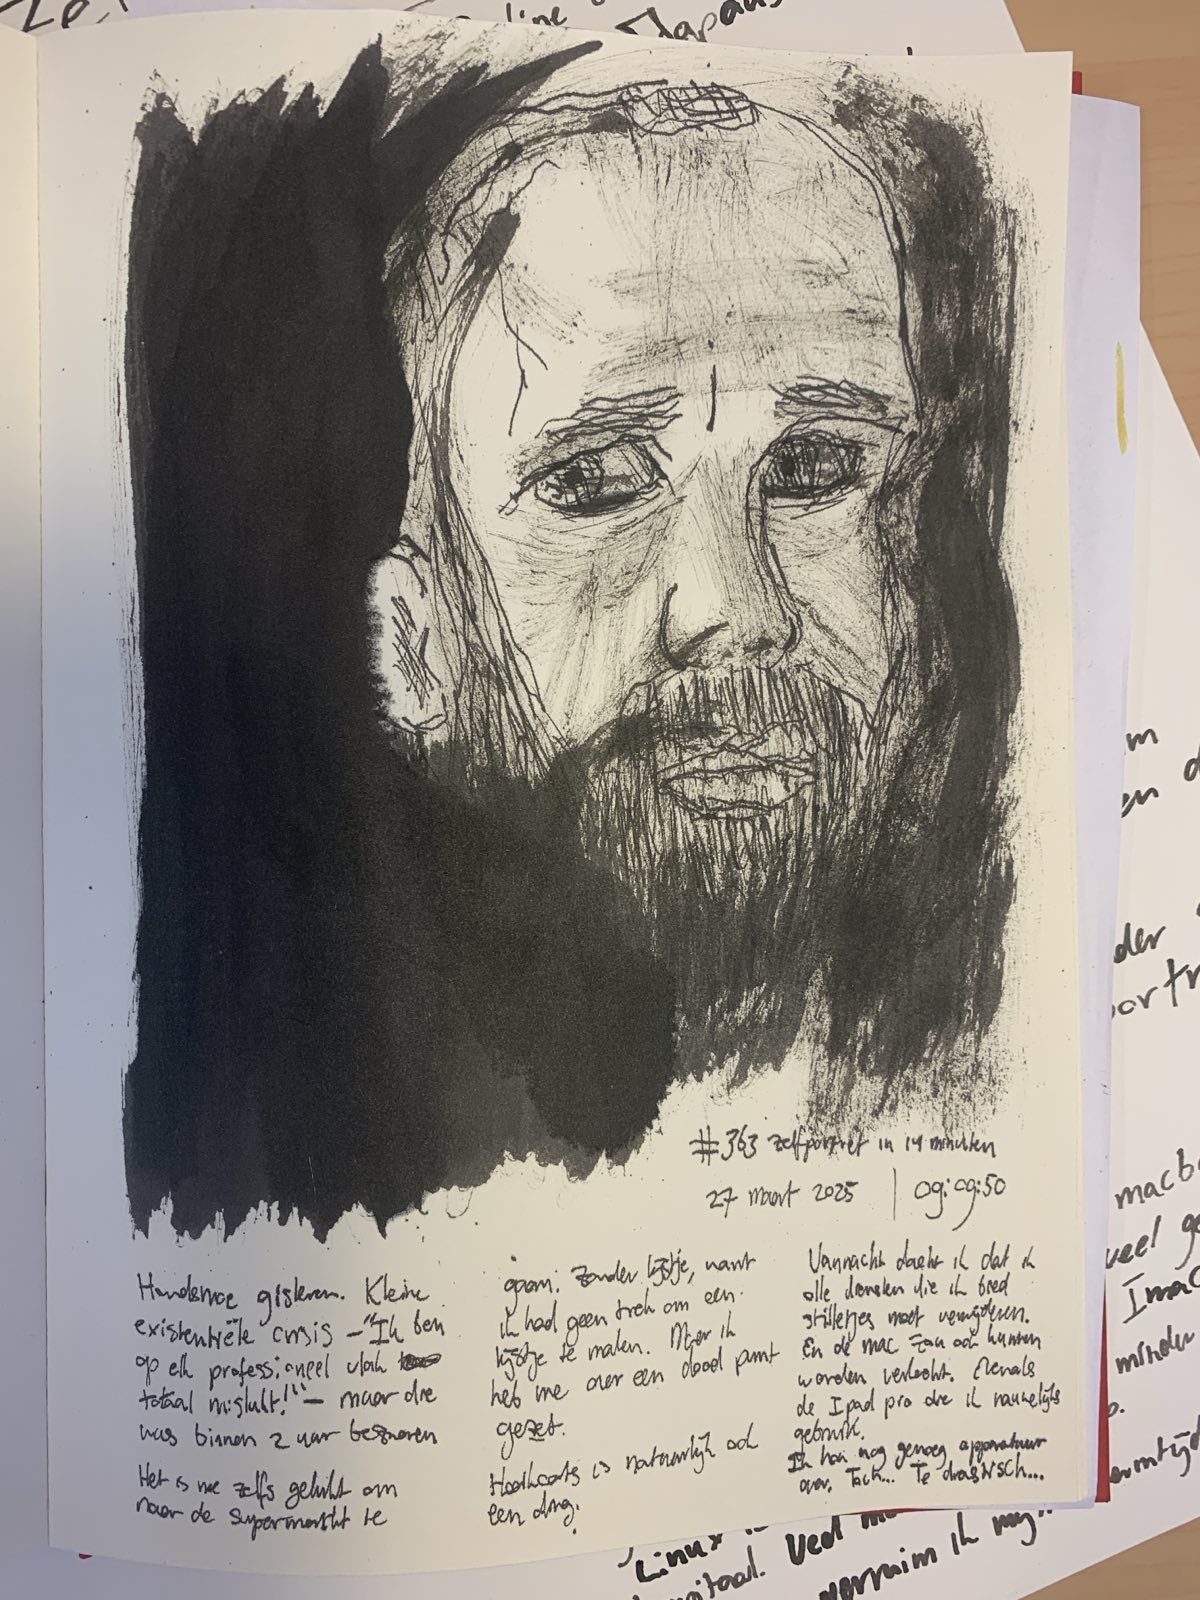 line
Japans
#363 zelfportret in 14 minuten
27 maart 2025 | 09:09:50
gisteren. Kleine
existentiële crisis – "Ik ben
op elk professioneel vlak
totaal mislukt!" – maar die
was binnen 2 uur bezworen
Het is me zelfs gelukt om
naar de supermarkt te
gaan. Zonder lijstje, want
ik had geen trek om een
lijstje te maken. Maar ik
heb me over een dood punt
gezet.
is natuurlijk ook
een ding.
Vannacht dacht ik dat ik
alle diensten die ik bied
stilletjes moet verwijderen.
En de mac zou ook kunnen
worden verkocht. Evenals
de Ipad pro die ik nauwelijks
gebruik.
Ik hou nog genoeg apparatuur
over. Toch... Te drastisch...
m
en d
der
portr
macb
veel ge
Imac
minder
Linux
veel
verruim ik mijn